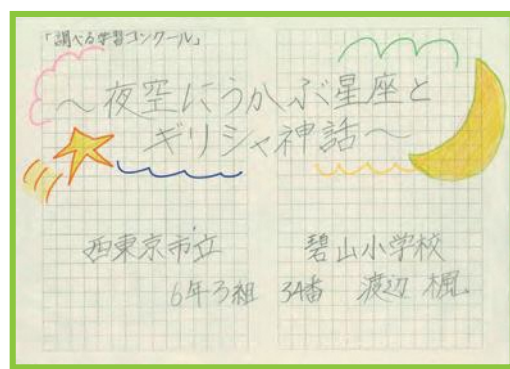 「調べる学習コンクール」
～夜空にうかぶ星座と
ギリシャ神話～
西東京市立 碧山小学校
6年3組 34番 渡辺 楓